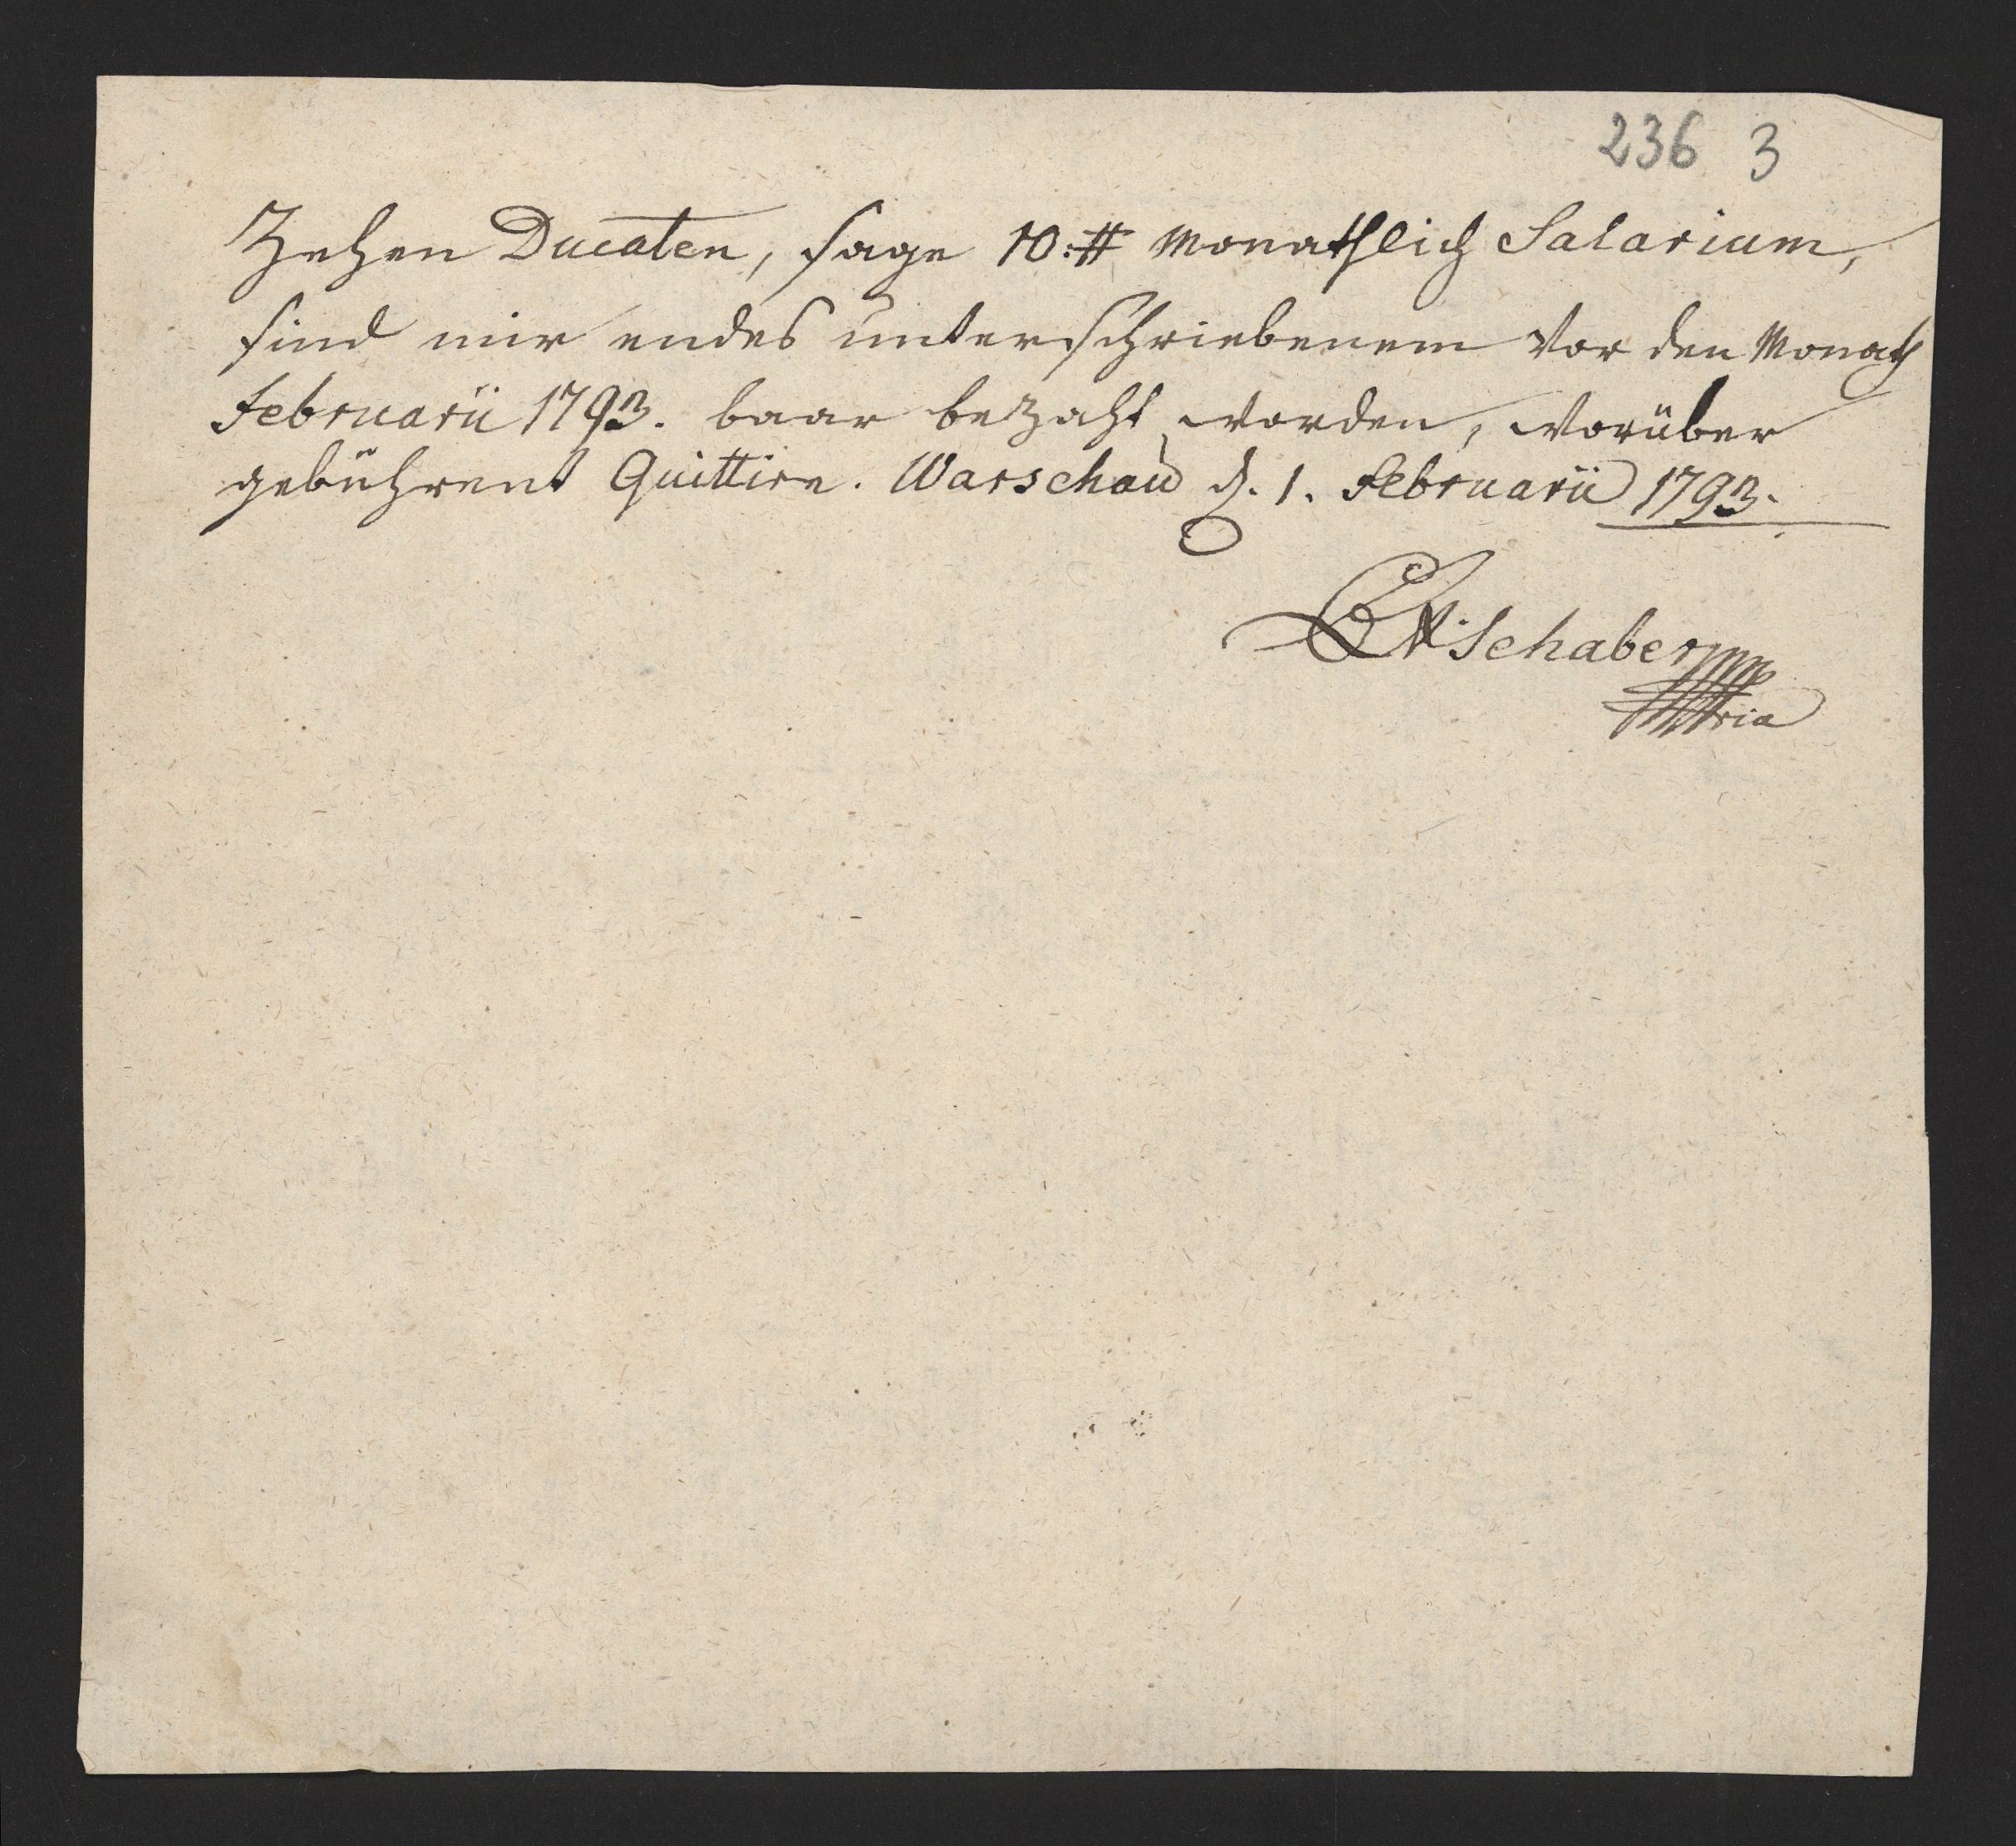 236 3
Zehen Ducaten, sage 10.# Monathlich Salarium,
sind mir endes unterschriebenem vor den Monath
Februarii 1793. baar bezahlt worden, worüber
gebührent Quittire. Warschau d. 1. Februarii 1793.
Schaber
ria